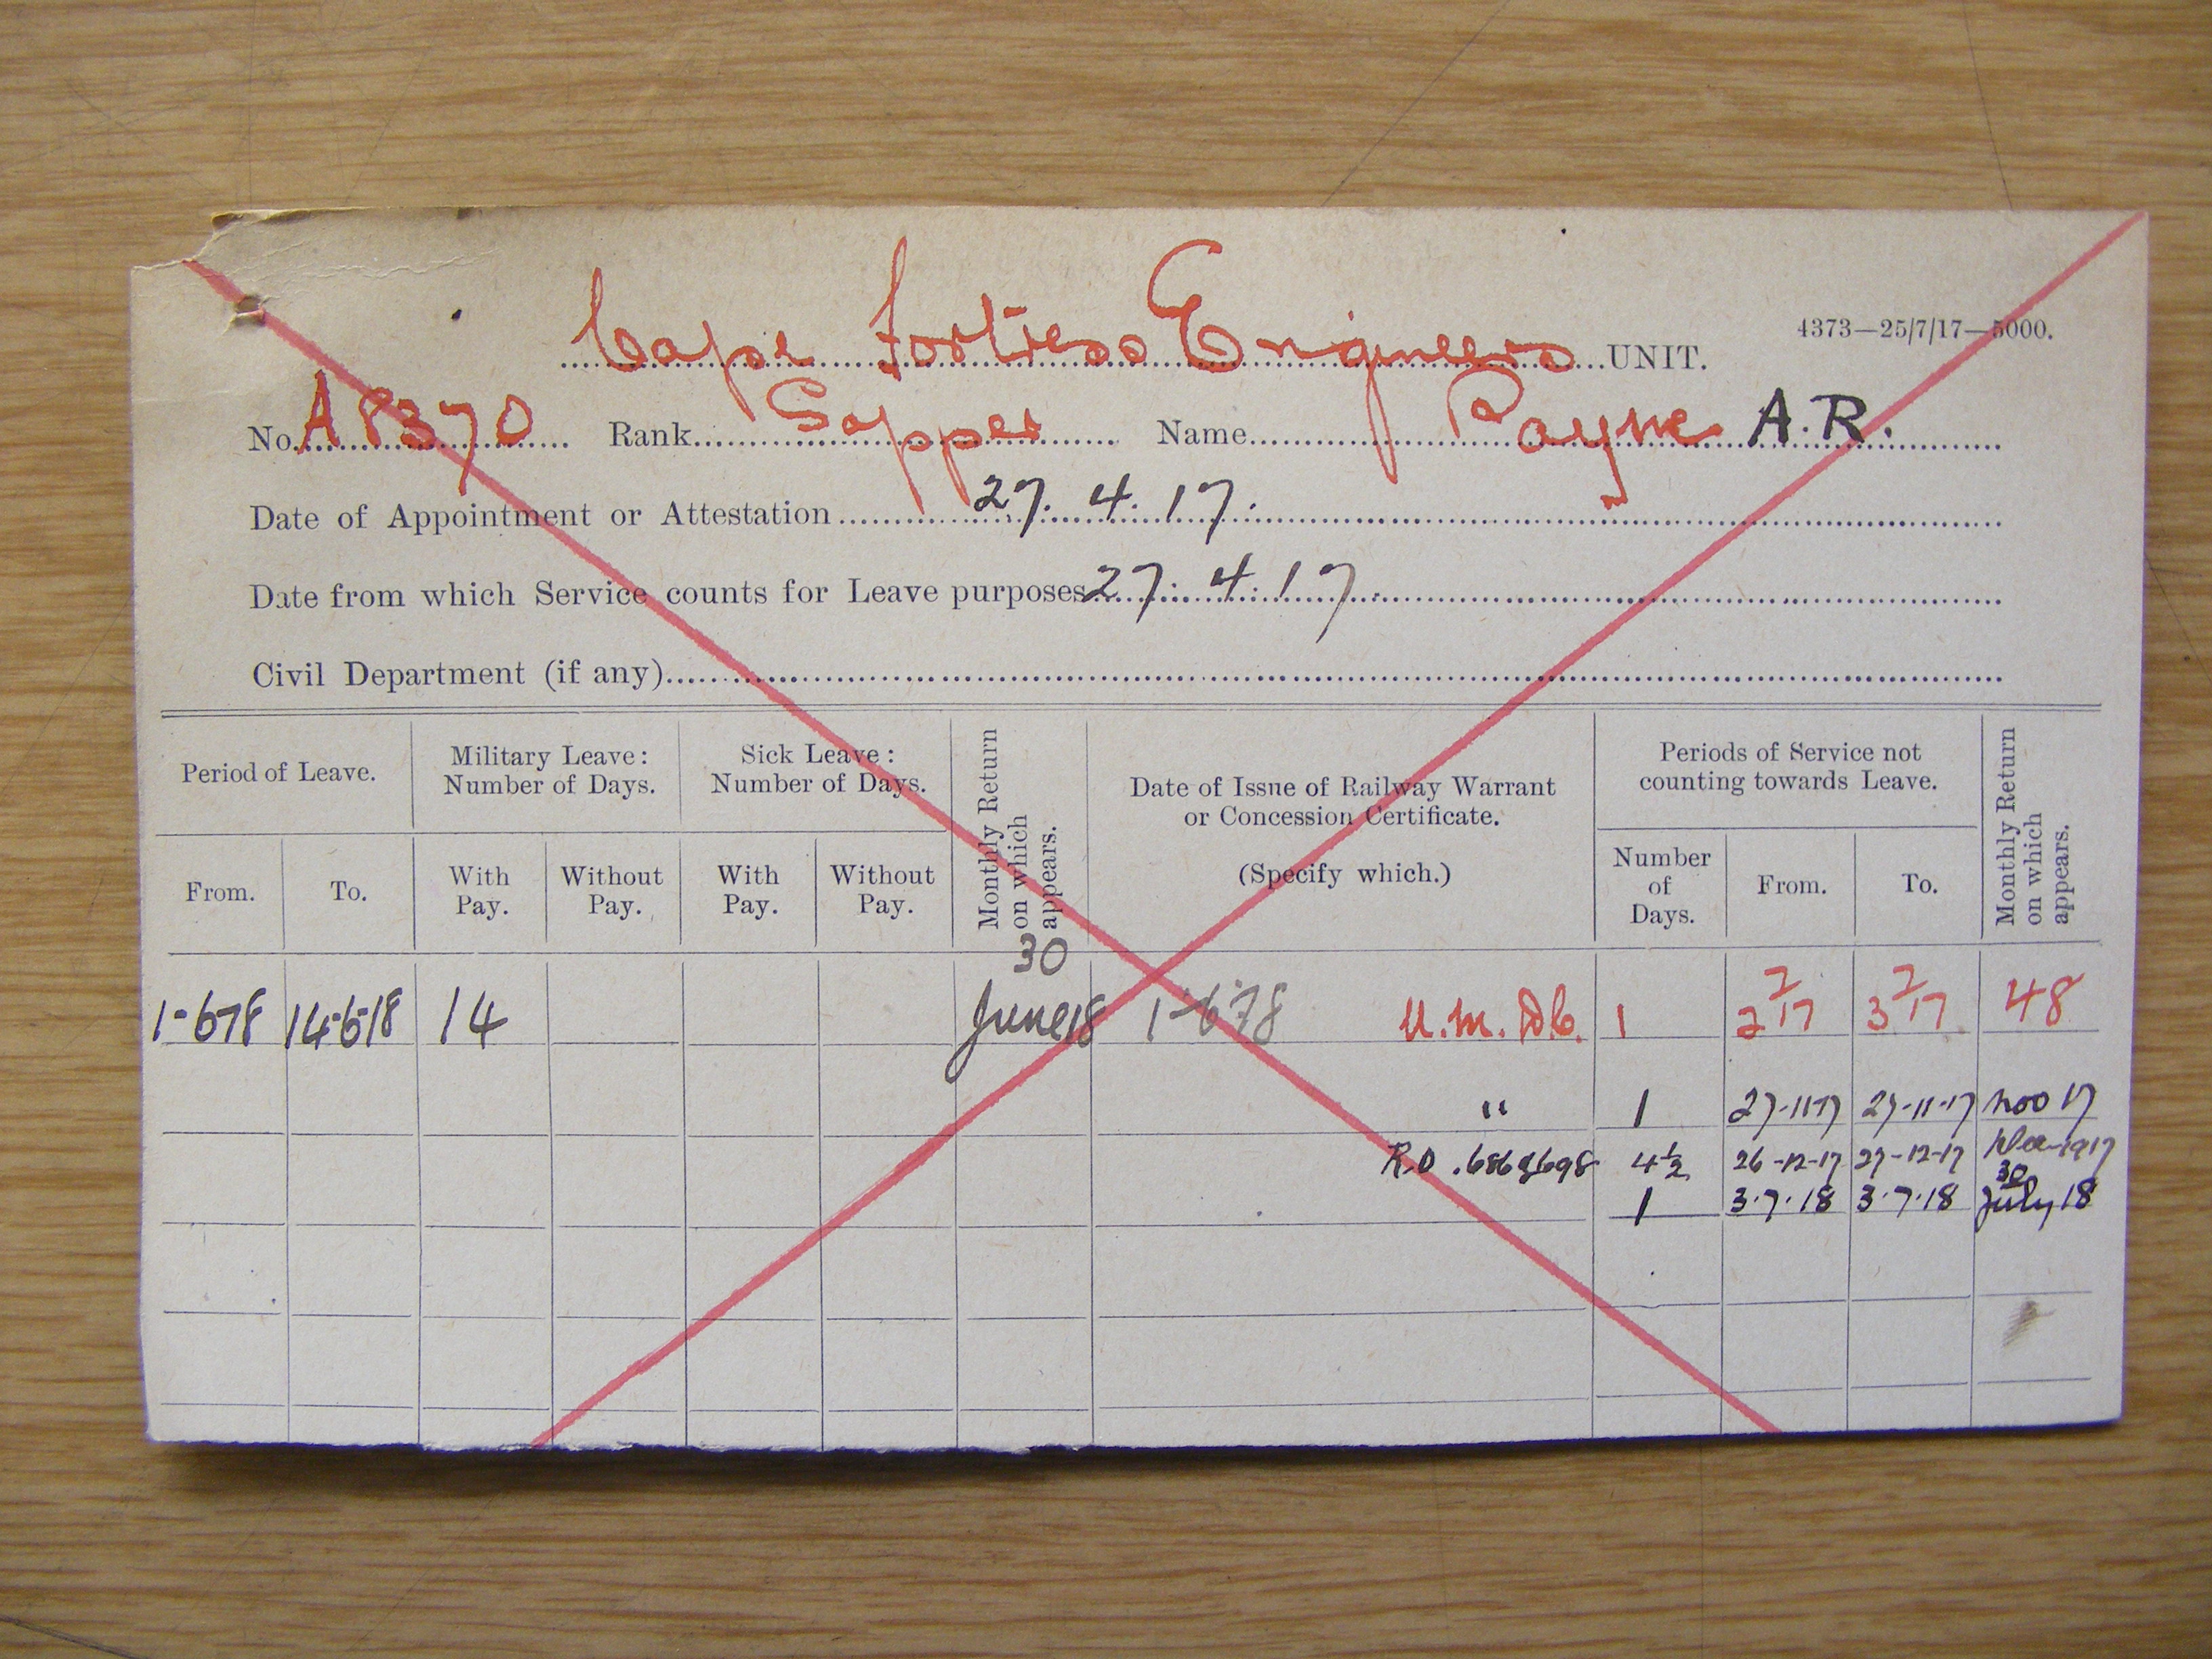 Cape Fortress Engineers UNIT.
4373—25/7/17—5000.
No. A 8370 Rank Sapper Name Payne A.R.
Date of Appointment or Attestation 27. 4. 17.
Date from which Service counts for Leave purposes 27. 4. 17.
Civil Department (if any)
Period of Leave. Military Leave: Number of Days. Sick Leave: Number of Days. Monthly Return on which appears. Date of Issue of Railway Warrant or Concession Certificate. (Specify which.) Periods of Service not counting towards Leave. Monthly Return on which appears.
From. To. With Pay. Without Pay. With Pay. Without Pay. Number of Days. From. To.
1-6-18 14-6-18 14 30 June 18 1-6-18 U.M. 1 2/7/17 3/7/17 48
" 1 27-11-17 27-11-17 Nov 17
R.O. 4½ 26-12-17 27-12-17 Dec 1917
1 3.7.18 3.7.18 30 July 18